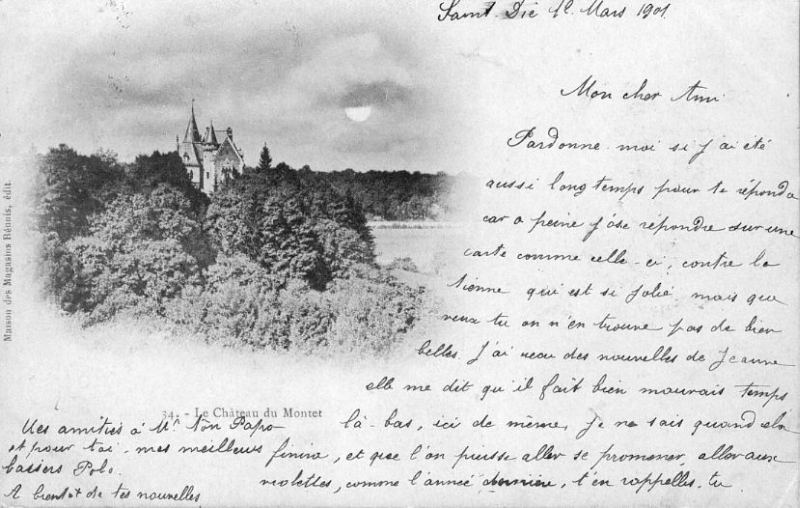 Saint-Dié le Mars 1901
Mon cher Ami
Pardonne-moi si j'ai été
aussi longtemps pour te répondre
car a peine j'ose répondre sur une
carte comme celle-ci, contre la
tienne qui est si jolie mais que
veux tu on n'en trouve pas de bien
belles. J'ai reçu des nouvelles de Jeanne
elle me dit qu'il fait bien mauvais temps
là-bas, ici de même, je ne sais quand cela
finira, et que l'on puisse aller se promener, aller aux
violettes, comme l'année dernière, t'en rappelles-tu
34. - Le Château du Montet
Mes amitiés à Mr Ton Papa
et pour toi, mes meilleurs
baisers Polo.
A bientôt de tes nouvelles
Maison des Magasins Réunis, édit.